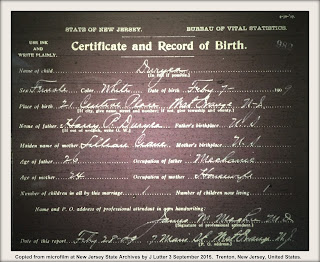 STATE OF NEW JERSEY. BUREAU OF VITAL STATISTICS.
USE INK AND WRITE PLAINLY.
Certificate and Record of Birth.
Name of child, Duryea
Sex Female Color White Date of birth Feby 7 1909
Place of birth 21 Central Place West Orange N.J.
Name of father, Harry P. Duryea Father's birthplace U.S
Maiden name of mother Lillian Father's birthplace U.S
Age of father 26 Occupation of father Mechanic
Age of mother 24 Occupation of mother Housewife
Number of children in all by this marriage 1 Number of children now living 1
Name and P. O. address of professional attendant in own handwriting:
James M. M.D.
(Signature of professional attendant)
Date of this report, Feby 28-09 7 Main St West Orange N.J.
Copied from microfilm at New Jersey State Archives by J Lutter 3 September 2015. Trenton, New Jersey, United States.